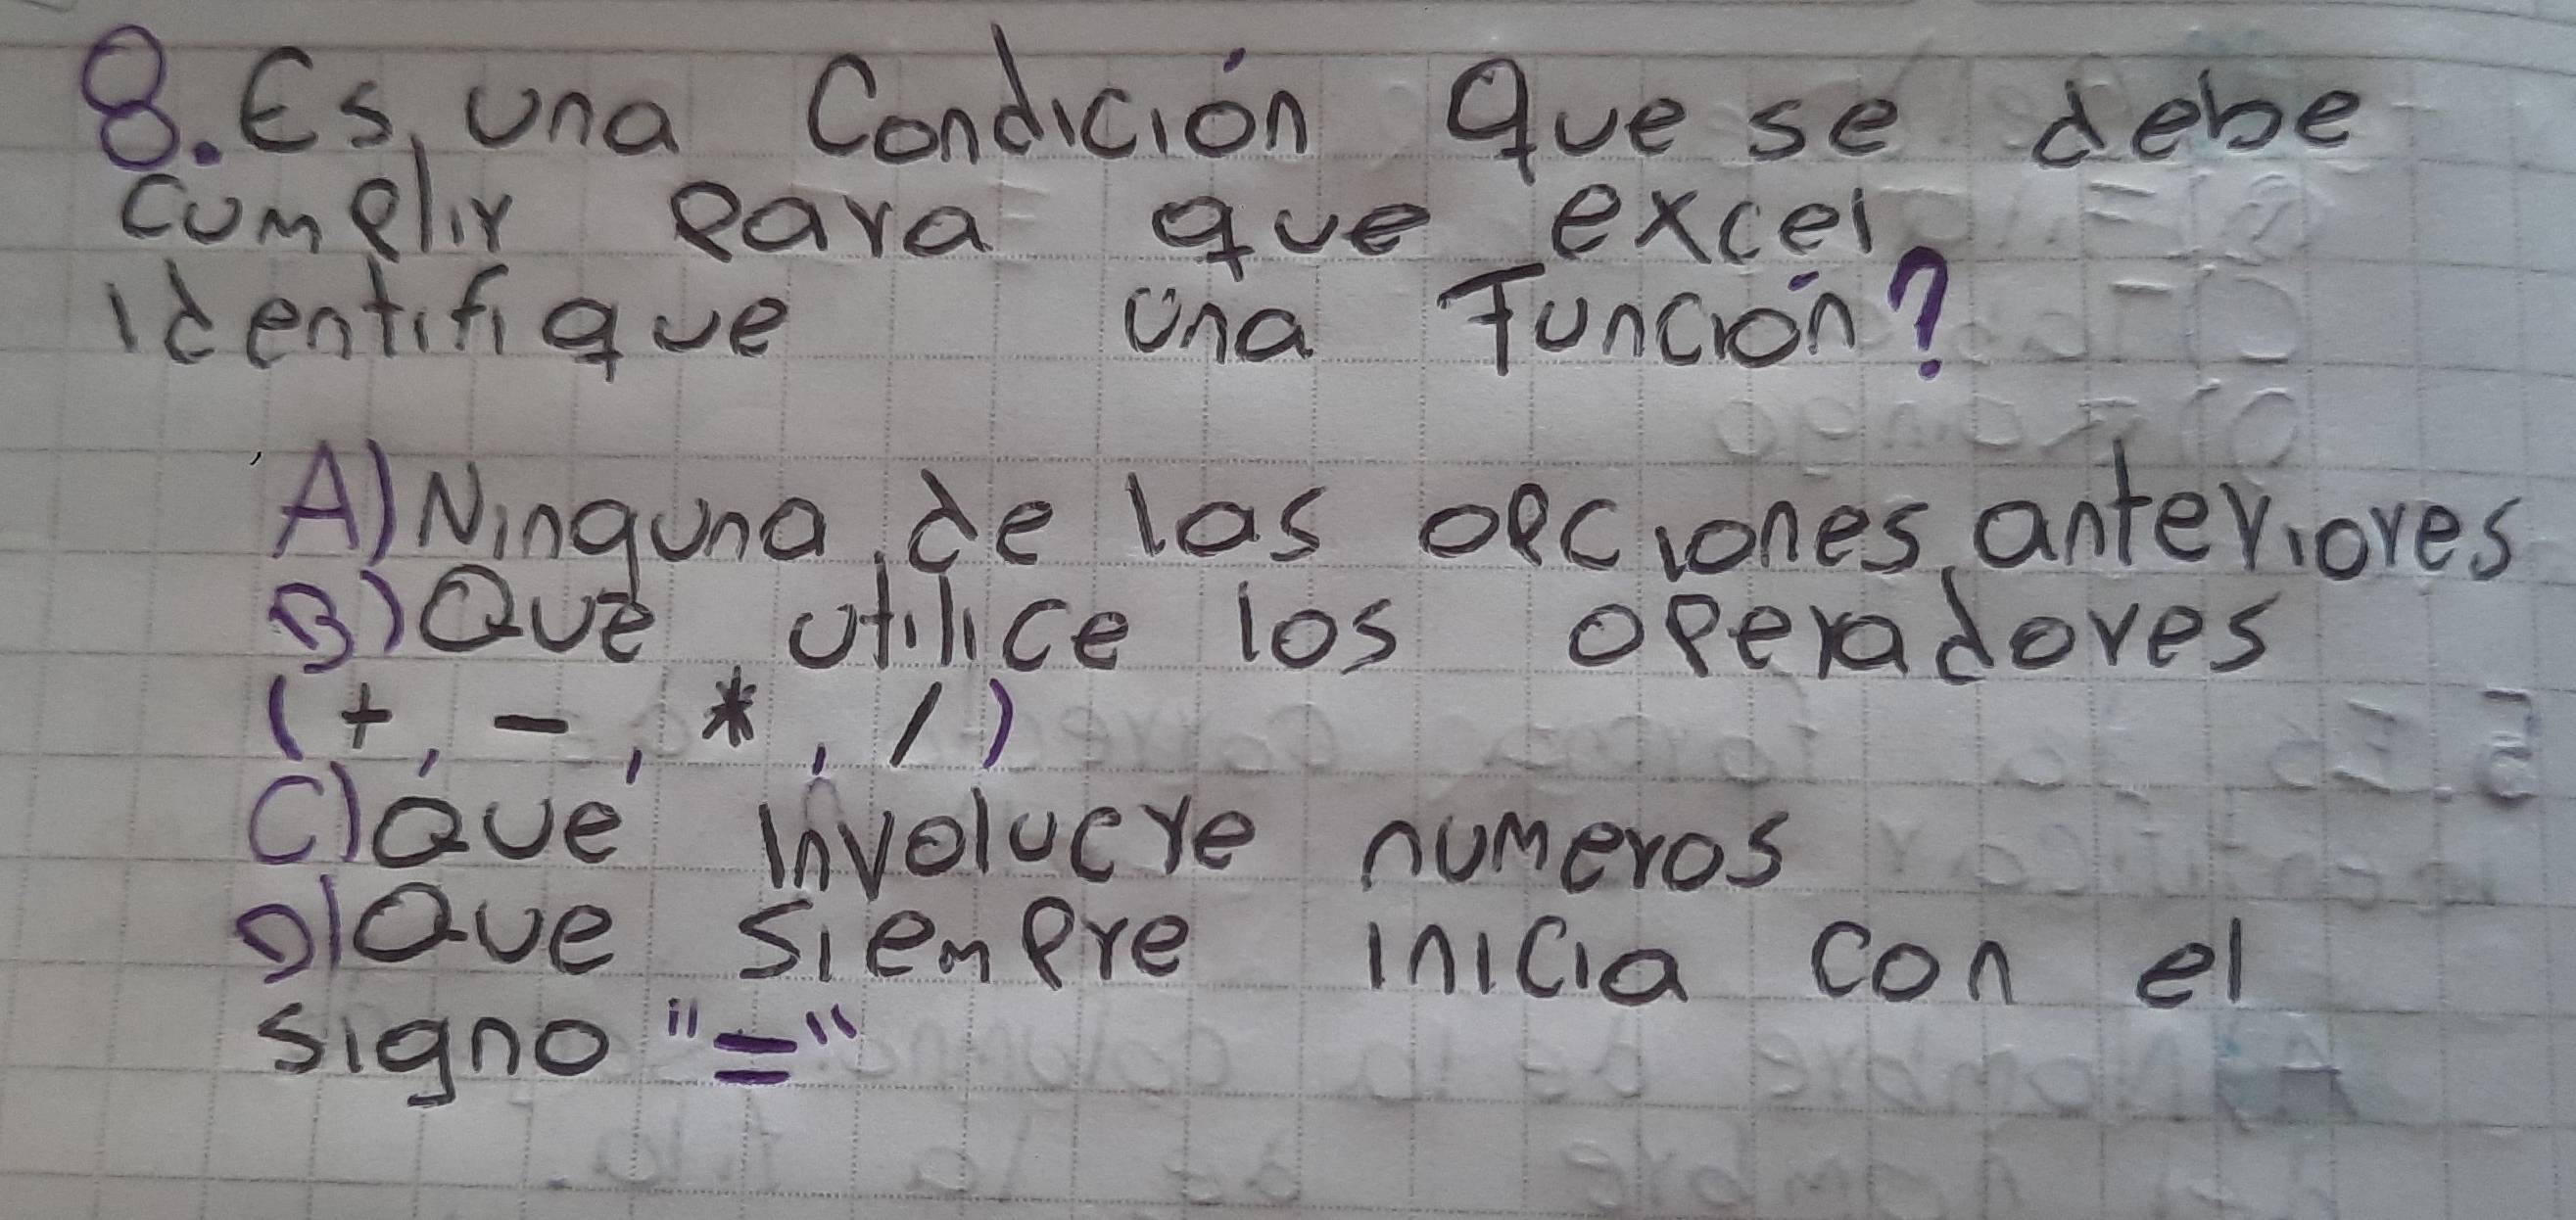 8. Es una Condición Que se debe
cumplir para que excel
identifique una Función?
A) Ninguna de las opciones anteriores
B) Que utilice los operadores
(+, -, *, /)
C) Que involucre numeros
D) Que siempre inicia con el
signo "="